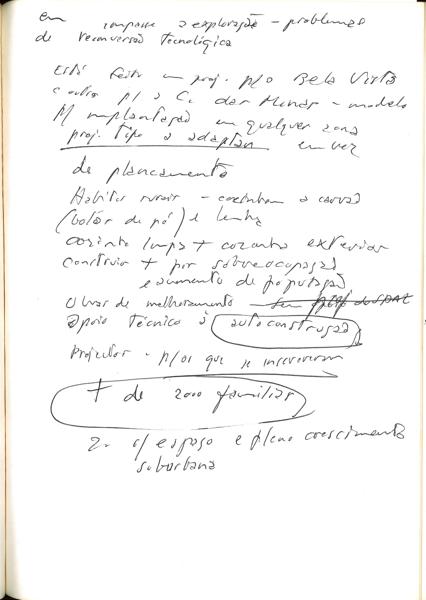 em compasso a exploração - problemas
de reconversão tecnológica
Está feito um proj. p/o Bela Vista
e outro p/ a C. das Minas - modelo
implantação em qualquer zona
proj. tipo a adaptar em vez
de planeamento
Habitos rurais - cozinham a carvão
(bolas de pó) e lenha
cozinha limpa + cozinha exterior
construir + por sobreocupação
e aumento de população
Obras de melhoramento
Apoio Técnico à autoconstrução
Projectos - p/os que se inscreveram
+ de 2000 familias
2. c/ espaço e pleno crescimento
suburbana